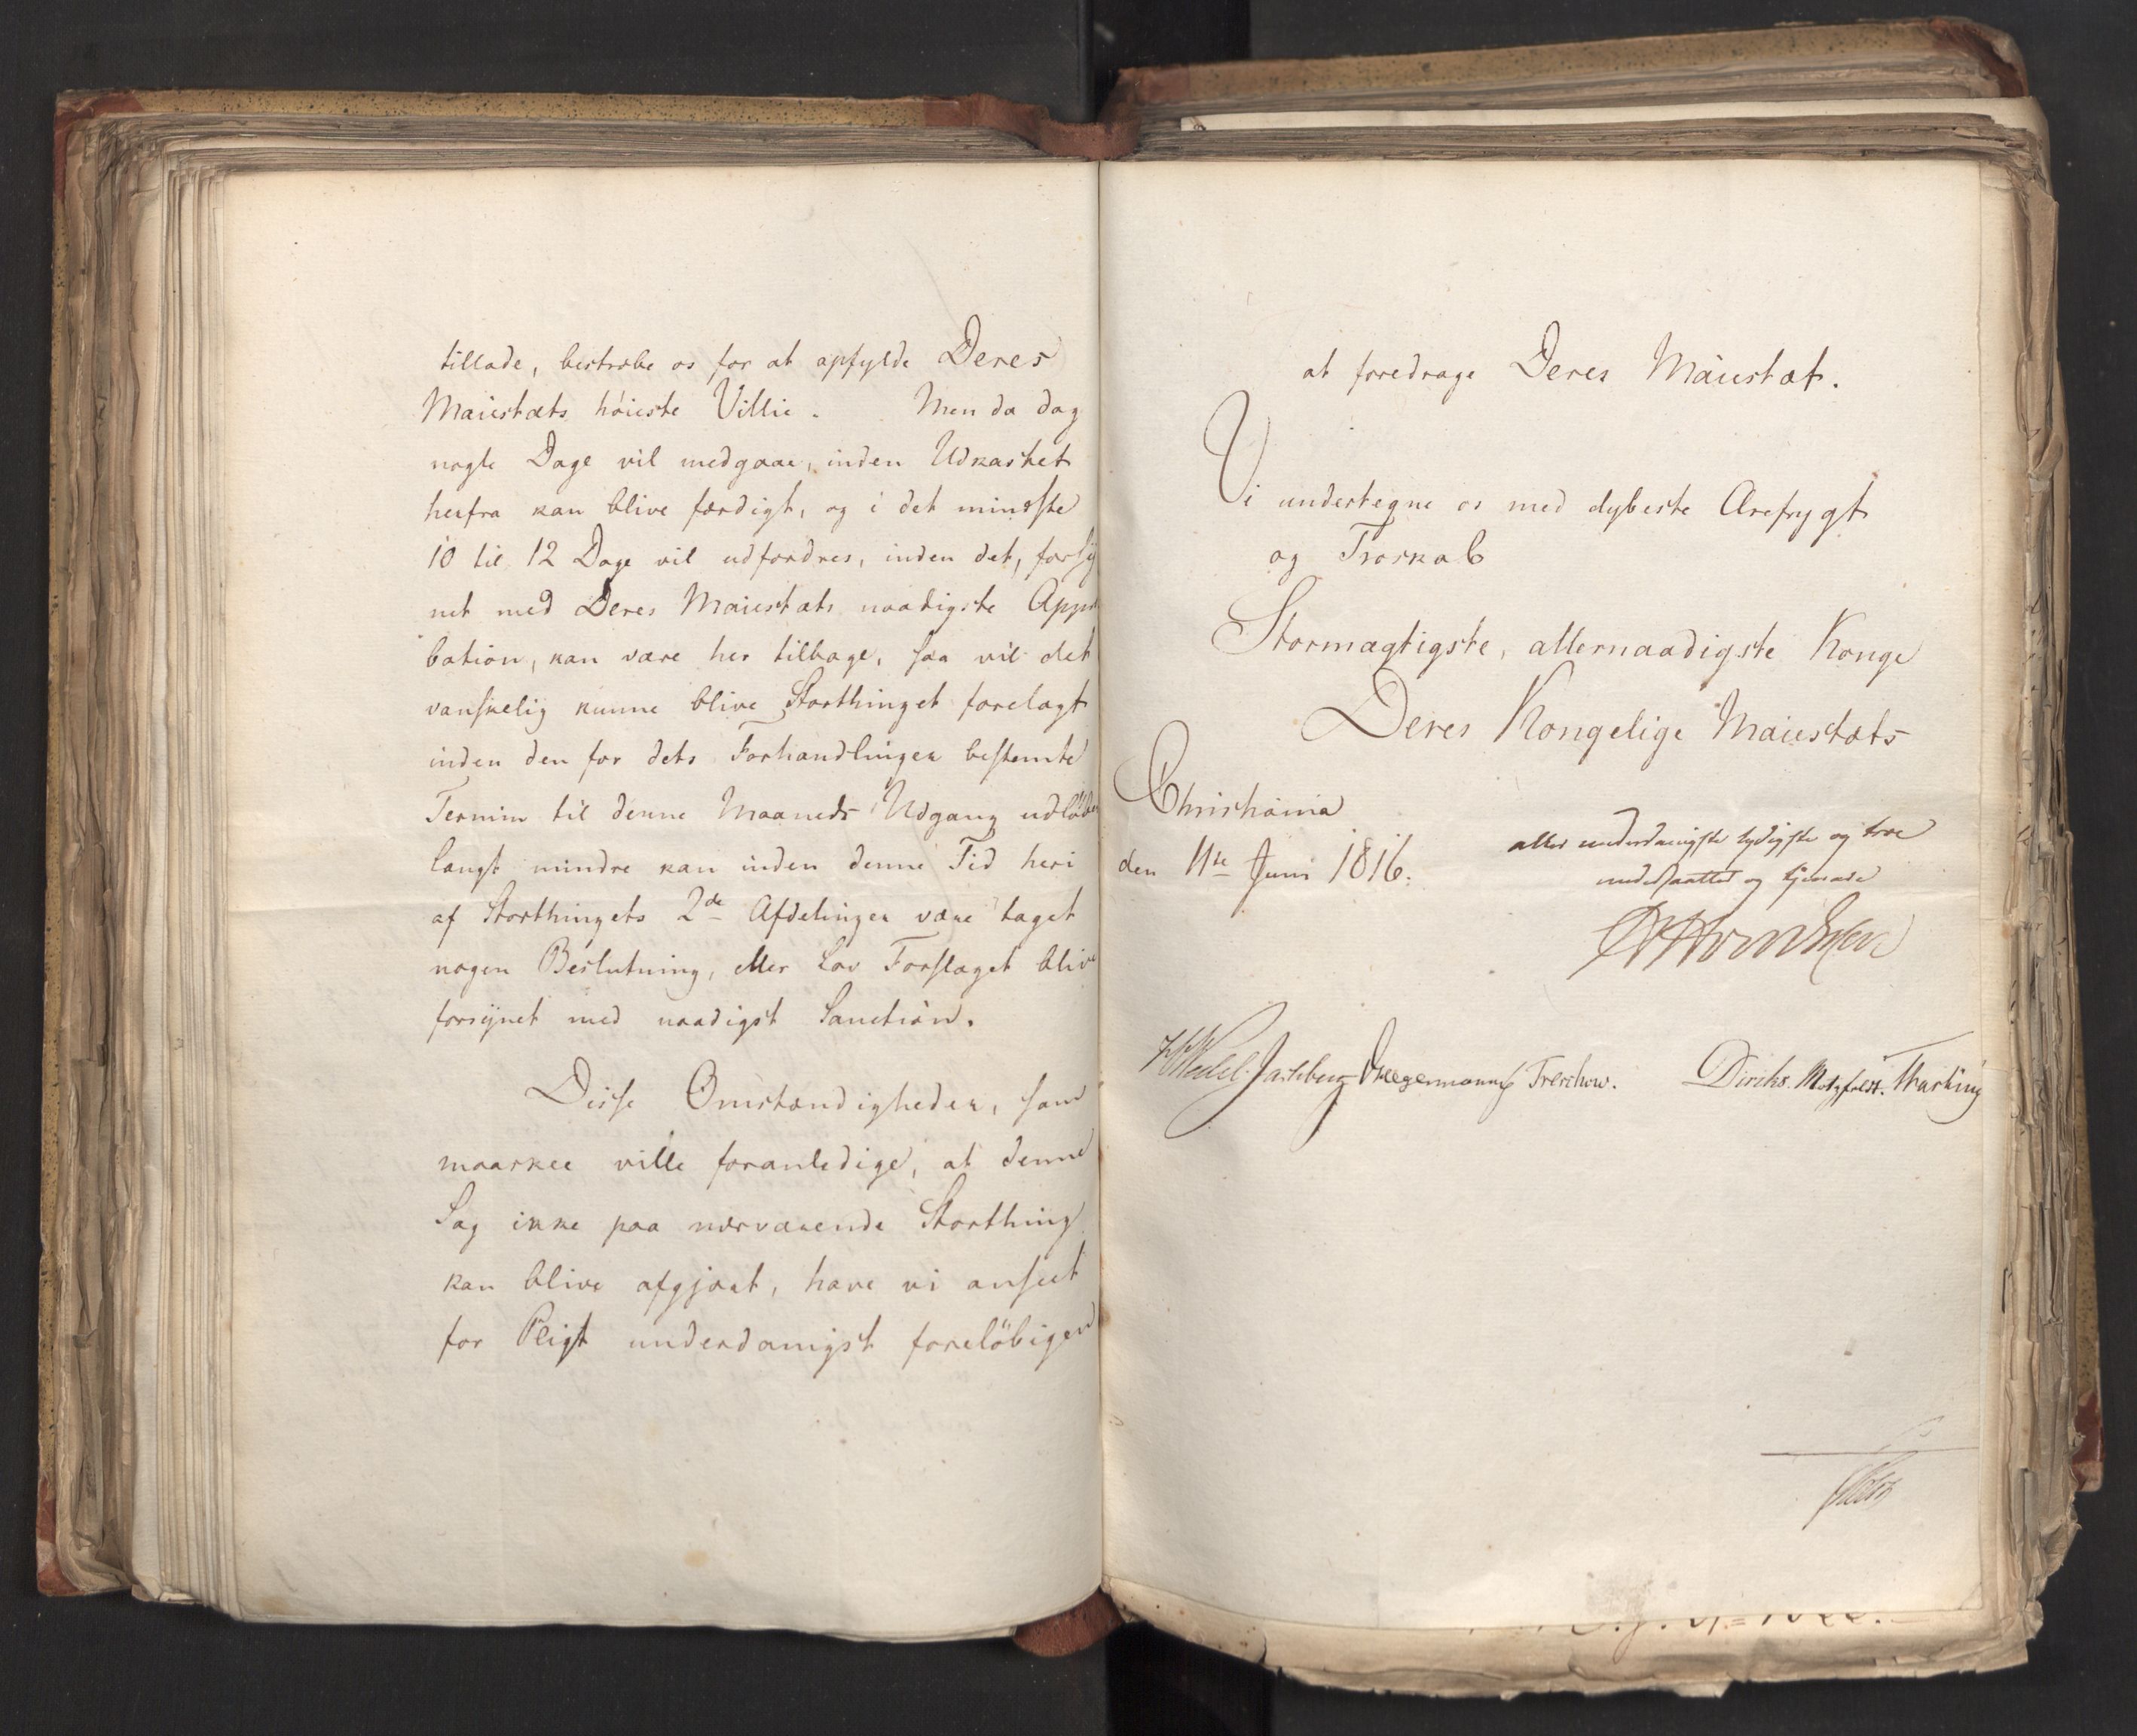 tillade, bestræbe os for at opfylde Deres
Maiestæts höieste Villie. Men da dog
nogle Dage vil medgaae, inden Udkastet
herfra kan blive færdigt, og i det mindste
10 til 12 Dage vil udfordres, inden det, forsÿ
net med Deres Maiestæts naadigste Appro
bation, kan være her tilbage, saa vil det
vanskelig kunne blive Storthinget forelagt
inden den for dets Forhandlinger bestemte
Termin til denne Maaneds Udgang udlöber
langt mindre kan inden denne Tid heri
af Storthingets 2de Afdelinger være taget
nogen Beslutning, eller Lov Forslaget blive
forsÿnet med naadigst Sanction.
Disse Omstændigheder, som
maaskee ville foranledige, at denne
Sag ikke paa nærværende Storthing
kan blive afgjort, have vi anseet
for Pligt underdanigst foreløbigen
at foredrage Deres Maiestæt.
Vi undertegne os med dybeste Ærefrygt
og Troskab
Stormægtigste, allernaadigste Konge
Deres Kongelige Maiestæts
Christiania
den 11te Juni 1816.
aller underdanigste lydigste og troe
undersaatter og tjenere
HWedel Jarlsberg Kreegermann Treschow. Diriks. Motzfeldt. Thaning